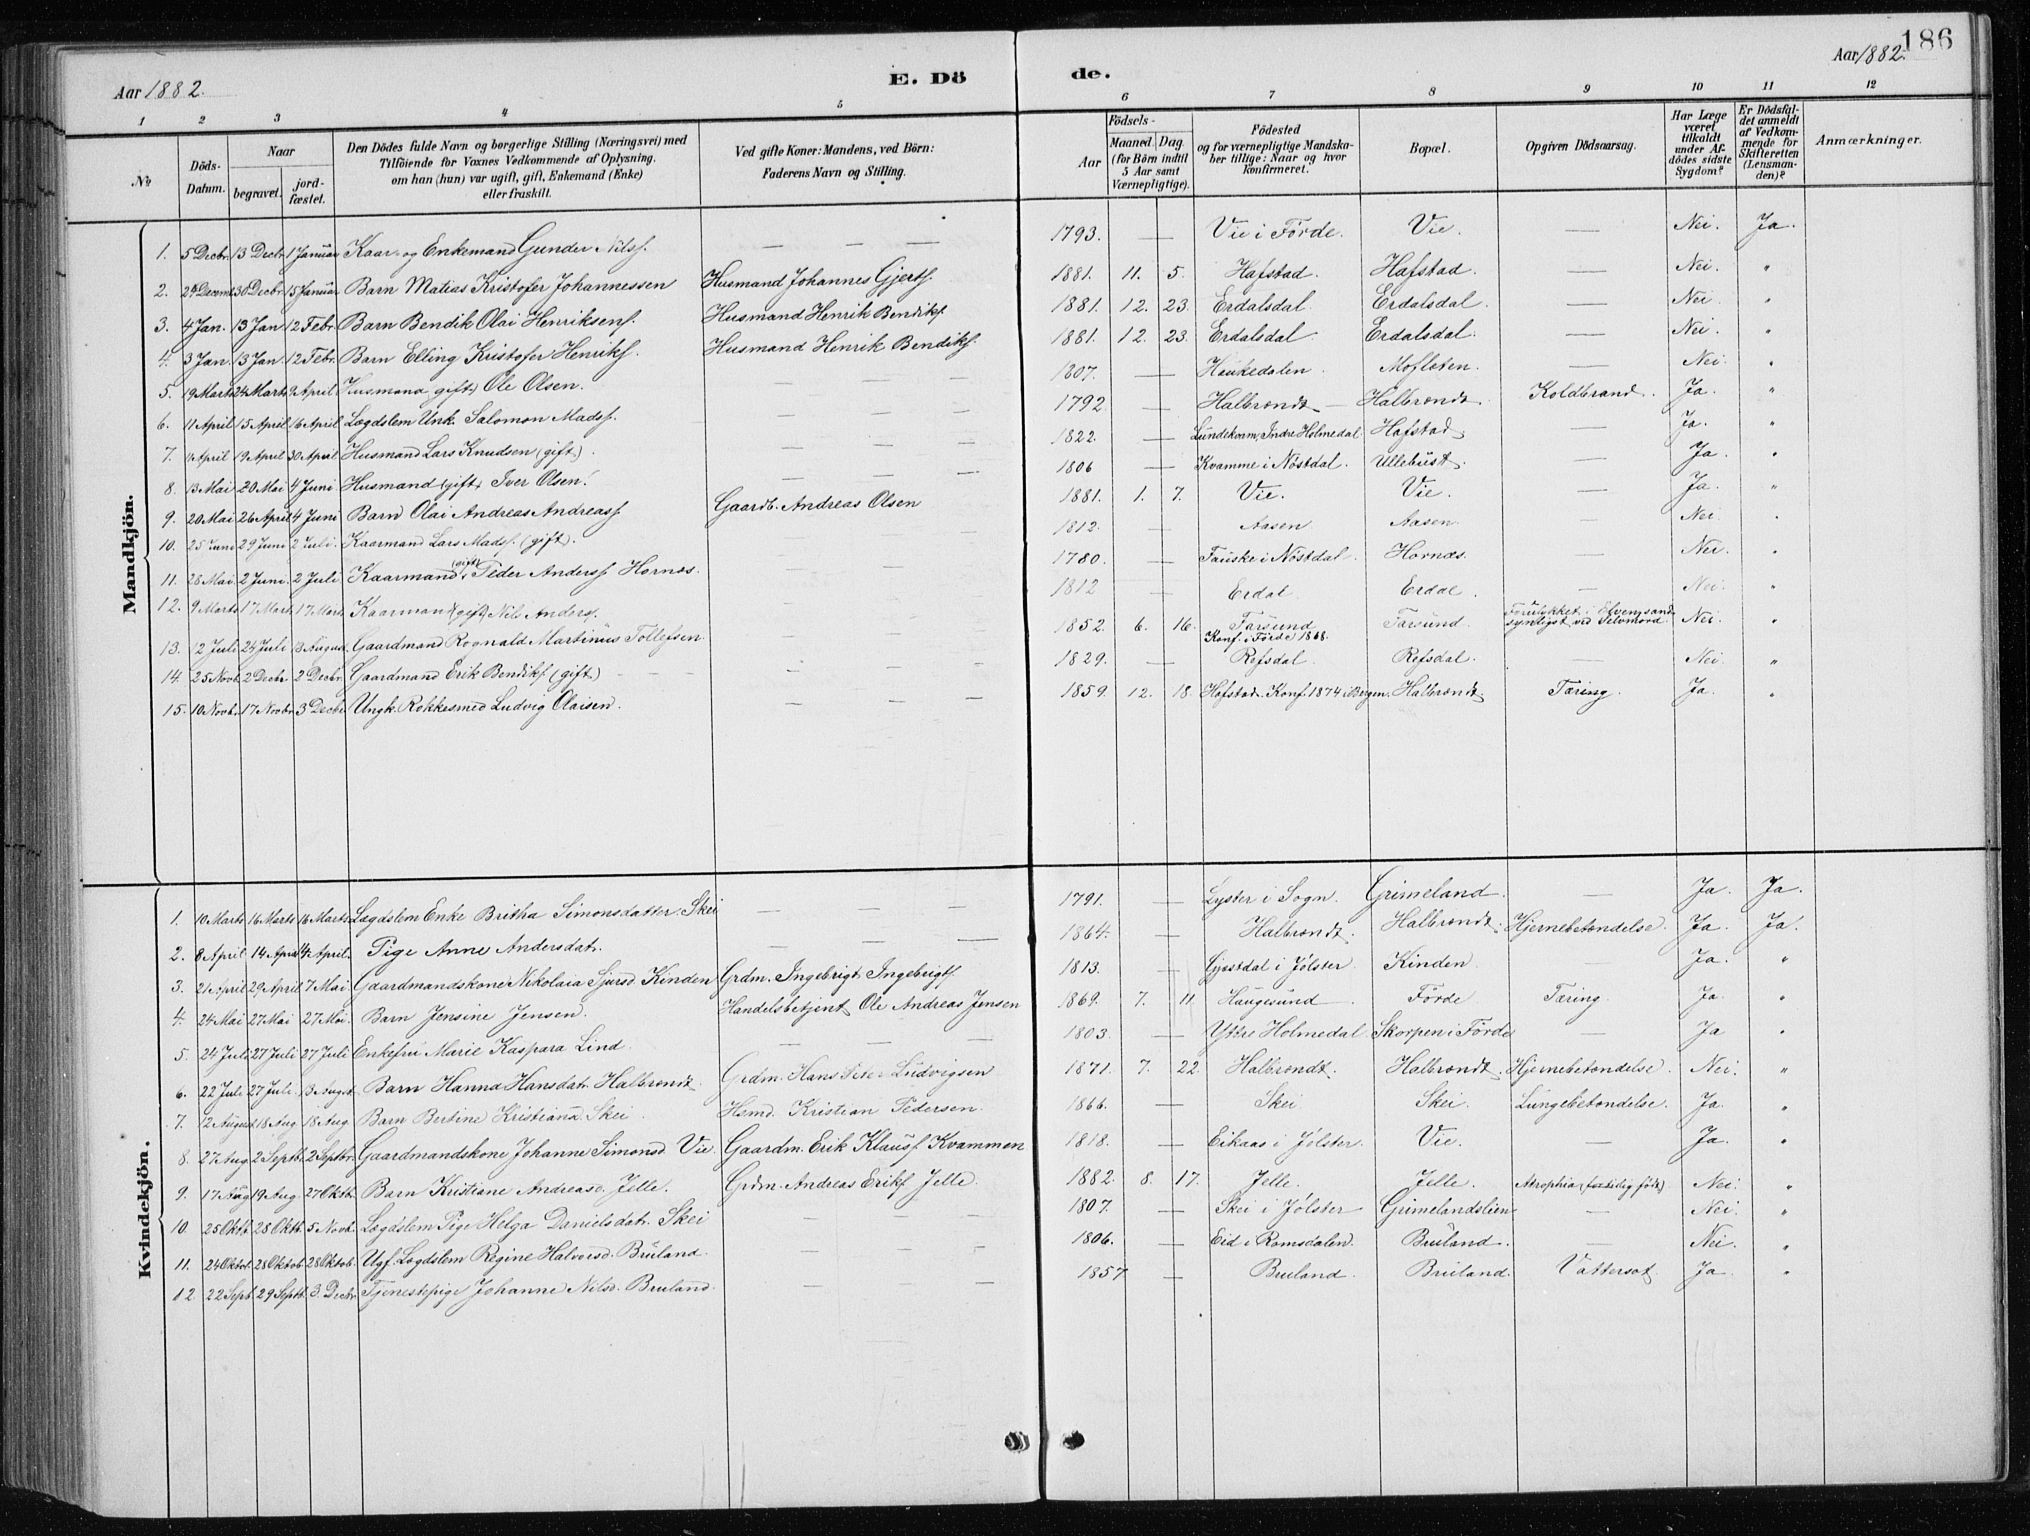 186
Aar 1882.
E. Dö
de.
Aar 1882.
1 2 3 4 5 6 7 8 9 10 11 12
No
Döds-Datum.
Naar
begravet.
jordfæstet.
Den Dödes fulde Navn og borgerlige Stilling (Næringsvei) med
Tilföiende for Voxnes Vedkommende af Oplysning,
om han (hun) var ugift, gift, Enkemand (Enke)
eller fraskilt.
Ved gifte Koner: Mandens, ved Börn:
Faderens Navn og Stilling.
Födsels-
Aar
Maaned. Dag.
(for Börn indtil
5 Aar samt
Værnepligtige).
Födested
og for værnepligtige Mandska-
ber tillige: Naar og hvor
konfirmeret.
Bopæl.
Opgiven Dödsaarsag.
Har Læge
været
tilkaldt
under Af-
dödes sidste
Sygdom?
Er Dödsfal-
det anmeldt
af Vedkom-
mende for
Skifteretten
(Lensman-
den)?
Anmærkninger.
Mandkjön.
1. 5 Decbr. 13 Decbr. 1 Januar Kaar- og Enkemand Gunder Nilss. — — — 1793. — Vie i Förde. Vie. — Nei. Ja.
2. 24 Decemb 30 Decbr. 15 Januar Barn Matias Kristofer Johannessen Husmand Johannes Gjerts. 1881. 11. 5. Hafstad. Hafstad. — Nei. "
3. 4 Jan. 13 Jan 12 Febr. Barn Bendik Olai Henriksens. Husmand Henrik Bendiks. 1881. 12. 23. Erdalsdal. Erdalsdal. — Nei "
4. 3 Jan. 13 Jan. 12 Febr. Barn Elling Kristofer Henriks. Husmand Henrik Bendiks. 1881. 12. 23. Erdalsdal. Erdalsdal. — Nei. "
5. 19 Marts 24 Marts 9 April Husmand (gift) Ole Olsen. — — — 1807. — Haukedalen. Mofloten. — Nei. "
6. 11 April 15 April 16 April Lægdslem Unk. Salomon Madss. — — — 1792. — Halbrendt — Halbrendt. Koldbrand. Ja. "
7. April 19 April 30 April Husmand Lars Knudsen (gift). — — — 1822. — Lundekvam, Indre Holmedal. Hafstad. — Ja. "
8. 13 Mai 20 Mai 4 Juni Husmand (gift) Iver Olsen. — — — 1806 — Kvamme i Nöstdal. Ullebust. — Ja. "
9. 20 Mai 26 April 4 Juni Barn Olai Andreas Andreass Gaardb. Andreas Olsen 1881. 1. 7. Vie. Vie. — Ja. "
10. 25 Juni 29 Juni 2 Juli. Kaarmand Lars Madss. (gift). — — — 1812. — Aasen Aasen. — Nei. "
11. 28 Mai. 2 Juni. 2 Juli Kaarmand (gift) Peder Anderss Hornes. — — — 1780. — Fauske i Nöstdal. Hornæs. — Nei. "
12. 9 Marts 17 Mart. 17 Mart. Kaarmand (gift) Nils Anders. — — — 1812 — Erdal. Erdal. — Nei. "
13. 12 Juli 24 Juli 13 August. Gaardmand Rognald Martinus Tollefsen. — — — 1852. 6. 16. Farsund Konf. i Förde 1868. Farsund. Forulykket i Elven, sand- synligst ved Selvmord. Nei. "
14. 25 Novb. 2 Decbr. 2 Decbr. Gaardmand Erik Bendiks. (gift) — — — 1829. — Refsdal. Refsdal. — Nei. "
15. 10 Novb. 17 Novbr. 3 Decbr. Ungk. Rokkesmed Ludvig Olaisen. — — — 1859. 12. 18. Hafstad. Konf. 1874 i Bergen. Halbrendt. Tæring. Ja. "
Kvindekjön.
1. 10 Marts 16 Marts 16 Marts Lægdslem Enke Britha Simonsdatter. Skei — — — 1791. — Lyster i Sogn. Grimeland. — Ja. Ja.
2. 8 April 14 April 14 April. Pige Anne Andersdat. — — — 1864. — Halbrendt. Halbrendt. Hjernebetendelse. Ja. Ja.
3. 21 April 29 April 7 Mai. Gaardmandskone Nikolaia Sjursd Kinden Grdm. Ingebrigt Ingebrigts. 1813. — Gjesdal i Jölster. Kinden. — Ja. "
4. 24 Mai 27 Mai 27 Mai. Barn Jensine Jensen. Handelsbetjent Ole Andreas Jensen 1869. 7. 11. Haugesund. Förde Tæring. Ja. "
5. 24 Juli 27 Juli 27 Juli Enkefru Marie Kaspara Lind. — — — 1803. — Yttre Holmedal. Skorpen i Förde — Ja "
6. 22 Juli 27 Juli. 13 August. Barn Hanna Hansdat. Halbrendt. Grdm. Hans Peter Ludvigsen 1871. 7. 22. Halbrendt. Halbrendt. Hjernebetendelse. Nei. "
7. 12 August 18 Aug. 18 Aug. Barn Bertine Kristiansd. Skei. Hsmd. Kristian Pedersen. 1866. — Skei Skei. Lungebetendelse. Ja. "
8. 27 Aug. 2 Septb. 2 Septbr. Gaardmandskone Johanne Simonsd Vie. Gaardm. Erik Klauss. Kvammen 1818. — Eikaas i Jölster. Vie. — Ja. "
9. 17 Aug 19 Aug. 27 Oktb. Barn Kristiane Andrease. Jelle. Grdm. Andreas Eriks Jelle. 1882. 8. 17. Jelle. Jelle. Atrophia (fortidlig född) Nei. "
10. 25 Oktb. 28 Oktb. 5 Novb. Lægdslem Pige Helga Danielsdat. Skei — — — 1807. — Skei i Jölster Grimelandslien — Nei. "
11. 24 Oktob. 28 Oktob. 28 Oktob. Ugf. Lægdslem Regine Halvorsd. Bruland. — — — 1806. — Eid i Romsdalen. Bruland. — Nei. "
12 22 Sept. 29 Septb. 3. Decbr. Tjenestepige Johanne Nilsd. Bruland. — — — 1857 — Bruland. Bruland. Vattersot. Ja. "